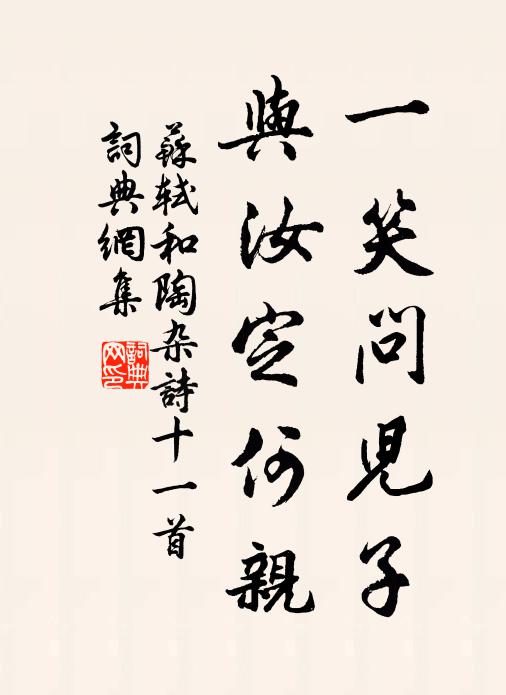 一笑問児子
與汝定何親
蘇軾和陶杂詩十一首
詞典網集
詞典
网印